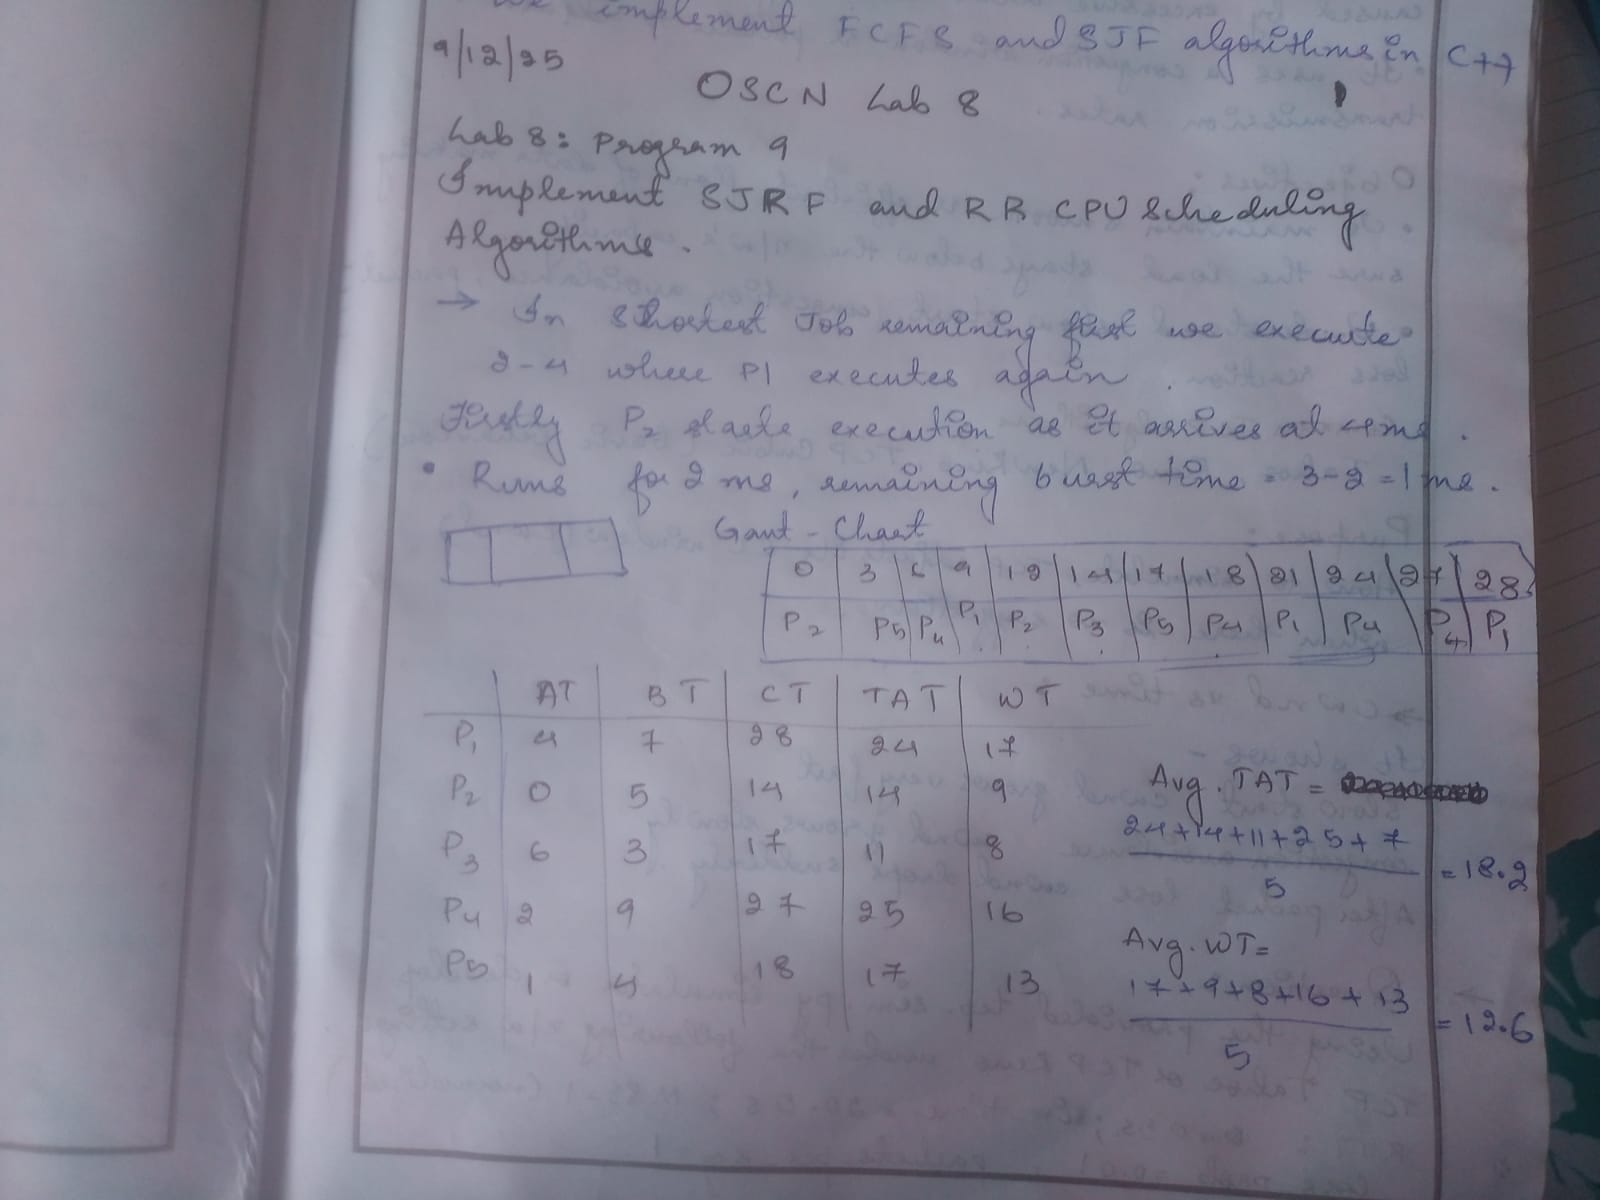 We implement FCFS and SJF algorithms in C++
9/12/25
OSCN Lab 8
Lab 8: Program 9
Implement SJRF and RR CPU Scheduling
Algorithms.
→ In Shortest Job remaining first we execute
2-4 where P1 executes again.
Firstly P2 starts execution as it arrives at 4ms.
• Runs for 2 ms, remaining burst time = 3-2 = 1 ms.
Gant-Chart
0 3 6 9 12 14 17 18 21 24 27 28
P2 P5 P4 P1 P2 P3 P5 P4 P1 P4 P4 P1
AT BT CT TAT WT
P1 4 7 28 24 17
P2 0 5 14 14 9
P3 6 3 17 11 8
P4 2 9 27 25 16
P5 1 4 18 17 13
Avg. TAT =
24+14+11+25+7
5
= 18.2
Avg. WT=
17+9+8+16+13
5
= 12.6